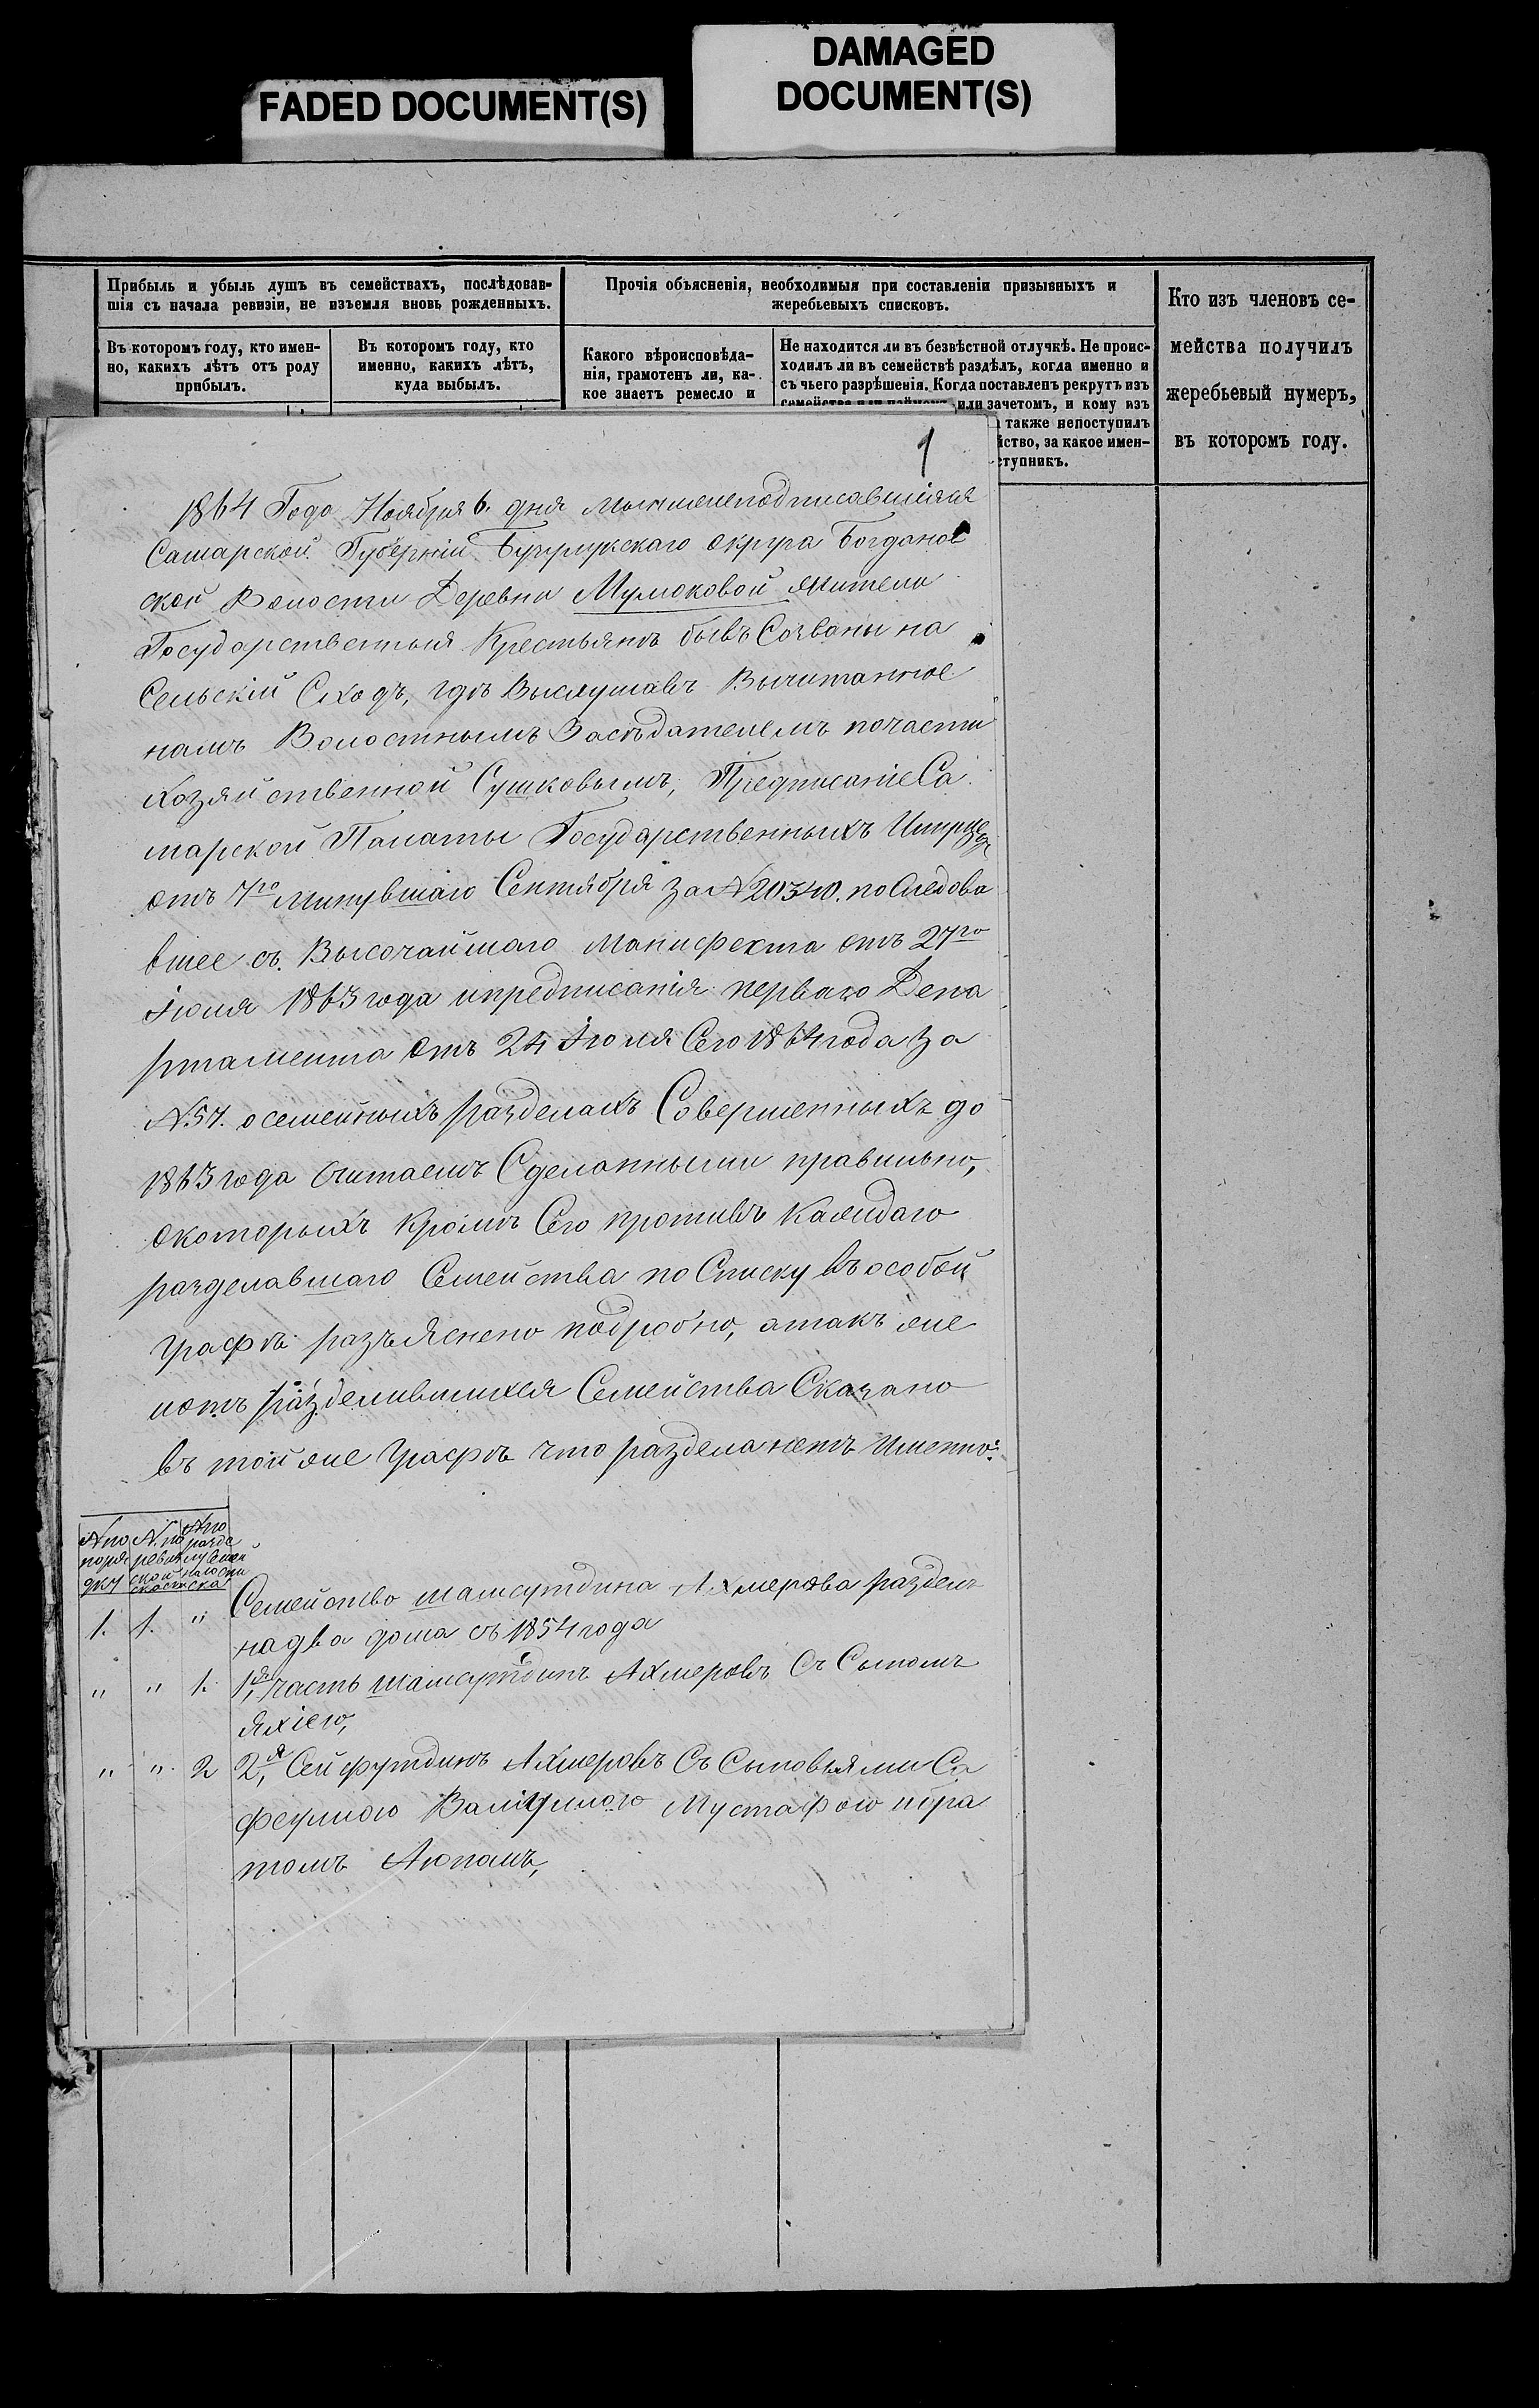 FADED DOCUMENT(S)
DAMAGED
DOCUMENT(S)
Прибыль и убыль душъ въ семействахъ, послѣдовав-
шія съ начала ревизіи, не изъемля вновь рожденныхъ.
Въ которомъ году, кто имен-
но, какихъ лѣтъ отъ роду
прибылъ.
Въ которомъ году, кто
именно, какихъ лѣтъ,
куда выбылъ.
Прочія объясненія, необходимыя при составленіи призывныхъ и
жеребьевыхъ списковъ.
Какого вѣроисповѣда-
нія, грамотенъ ли, ка-
кое знаетъ ремесло и
Не находится ли въ безвѣстной отлучкѣ. Не проис-
ходилъ ли въ семействѣ раздѣлъ, когда именно и
съ чьего разрѣшенія. Когда поставленъ рекрутъ изъ
или зачетомъ, и кому изъ
также непоступилъ
йство, за какое имен-
ступникъ.
Кто изъ членовъ се-
мейства получилъ
жеребьевый нумеръ,
въ которомъ году.
1
1864 Года Ноября 6. дня мы нижеподписавшіяся
Самарской Губерніи Бузулукскаго округа Богданов
ской Волости Деревни Мулюковой жители
Государственныя Крестьянъ бывъ Созваны на
Сельскій Сходъ, гдѣ Выслушавъ Вычитанное
намъ Волостнымъ Засѣдателемъ почасти
Хозяйственной Сушковымъ, Предписаніе Са
марской Палаты Государственныхъ Имущ
отъ 7го минувшаго Сентября за №20340. по Следова
вшее съ. Высочайшаго Манифекта отъ 27го
Іюля 1863 года ипредписанія перваго Депа
ртамента отъ 24 Іюля Сего 1864 года За
№.57. осемейныхъ разделахъ Совершенныхъ до
1863 года Считаемъ Сделанными правильно,
окоторыхъ кромѣ Сего противъ Каждаго
разделавшаго Семейства по Списку въ особой
графѣ разъяснено подробно, атакъ же
иотъ разделившихся Семейства Сказано
въ той же графѣ что раздела нетъ Именно:
№ по
поря
дку
№. по
ревиз
ской
сказ
№ по
разде
лу
1. 1. " Семейство шамсутдина Ахмерова раздел
на два дома съ 1854 года
" " 1. 1я, часть шамсутдинъ Ахмеровъ Съ Сыномъ
яхіею,
" " 2 2я, Сейфутдинъ Ахмеровъ Съ Сыновьями Са
феулою Валиулою Мустафою ибра
томъ Аюпомъ,